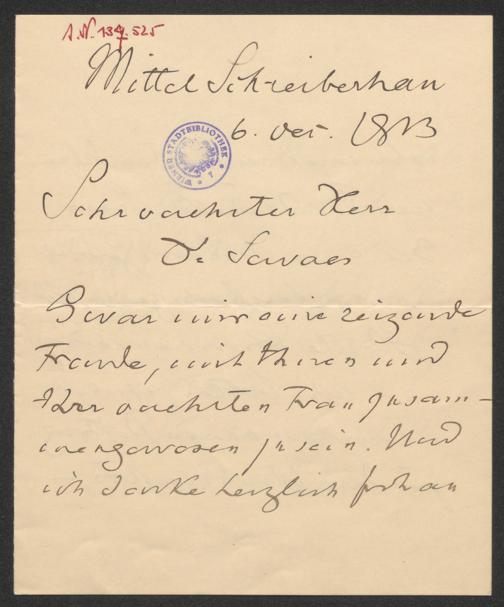 I.N. 134.525
Mittel Schreiberhau
6. Oct. 1913
WIENER STADTBIBLIOTHEK
Sehr verehrter Herr
Dr Servaes
Es war mir eine reizende
Freude, mit Ihnen und
Ihrer verehrten Frau zusam-
mengewesen zu sein. Und
ich danke herzlich